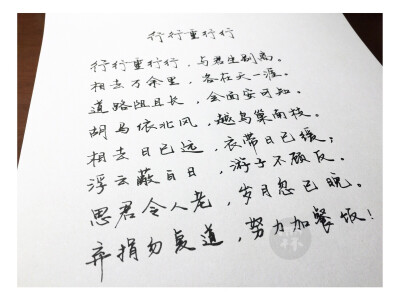 行行重行行
行行重行行，与君生别离。
相去万余里，各在天一涯。
道路阻且长，会面安可知。
胡马依北风，越鸟巢南枝。
相去日已远，衣带日已缓；
浮云蔽白日，游子不顾反。
思君令人老，岁月忽已晚。
弃捐勿复道，努力加餐饭！